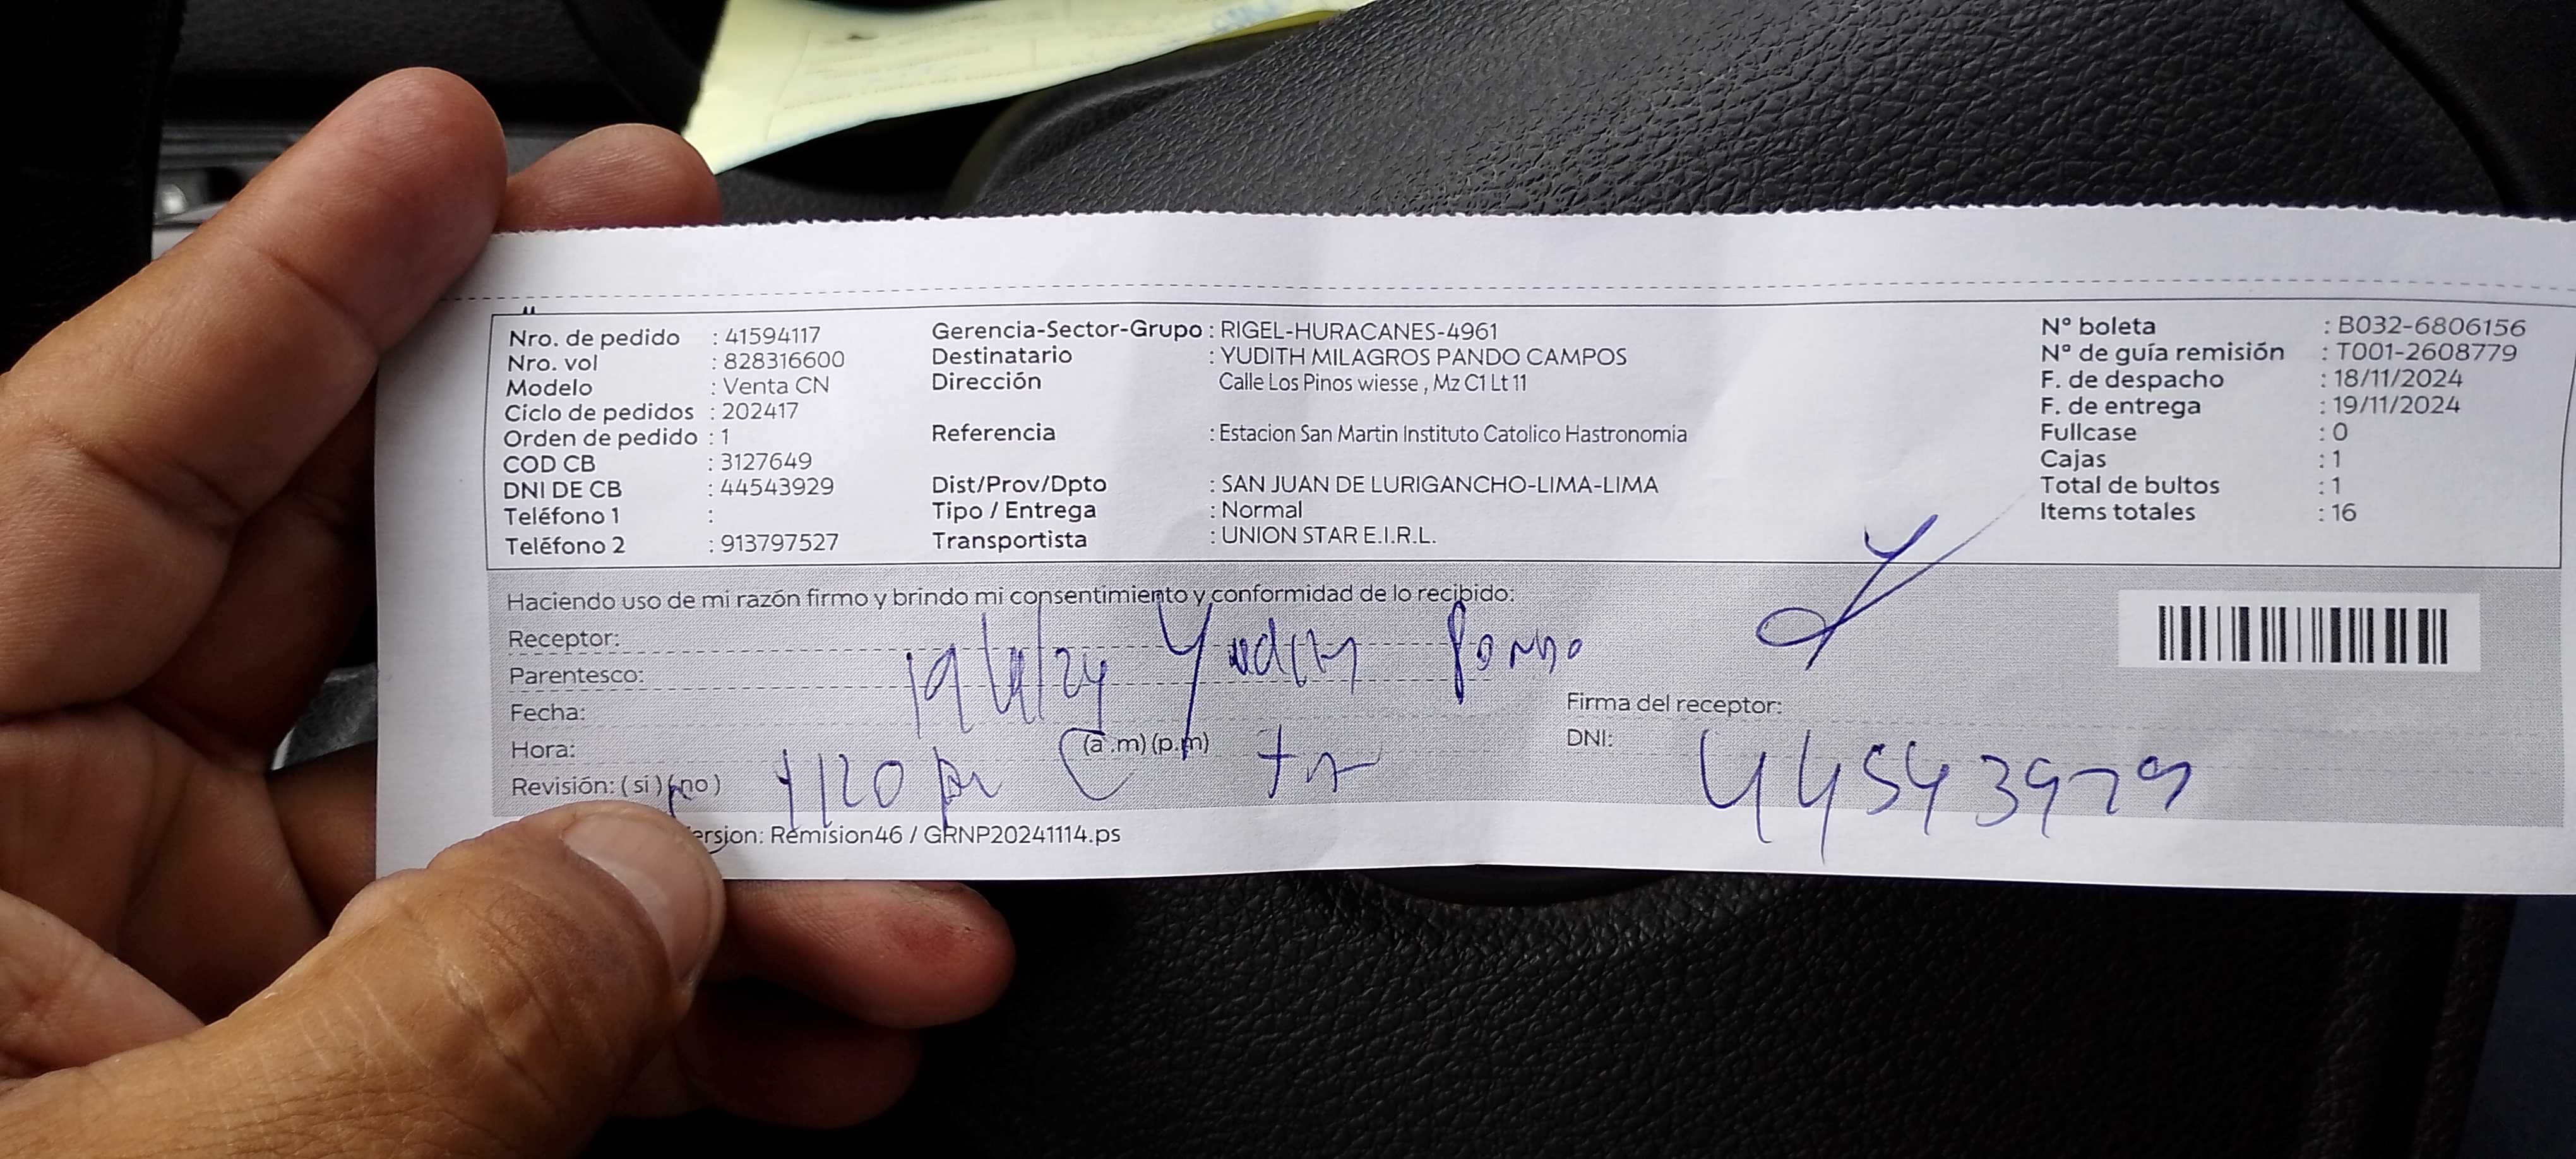 Nro. de pedido : 41594117
Nro. vol : 828316600
Modelo : Venta CN
Ciclo de pedidos : 202417
Orden de pedido : 1
COD CB : 3127649
DNI DE CB : 44543929
Teléfono 1 :
Teléfono 2 : 913797527
Gerencia-Sector-Grupo : RIGEL-HURACANES-4961
Destinatario : YUDITH MILAGROS PANDO CAMPOS
Dirección Calle Los Pinos wiesse , Mz C1 Lt 11
Referencia : Estacion San Martin Instituto Catolico Hastronomia
Dist/Prov/Dpto : SAN JUAN DE LURIGANCHO-LIMA-LIMA
Tipo / Entrega : Normal
Transportista : UNION STAR E.I.R.L.
Nº boleta : B032-6806156
Nº de guía remisión : T001-2608779
F. de despacho : 18/11/2024
F. de entrega : 19/11/2024
Fullcase : 0
Cajas : 1
Total de bultos : 1
Items totales : 16
Haciendo uso de mi razón firmo y brindo mi consentimiento y conformidad de lo recibido:
Receptor:
Parentesco:
19/11/24 Yudith Pando
Fecha:
Hora: (a.m) (p.m)
Revisión: (si) (no)
Firma del receptor:
DNI: 44543929
ersion: Remision46 / GRNP20241114.ps